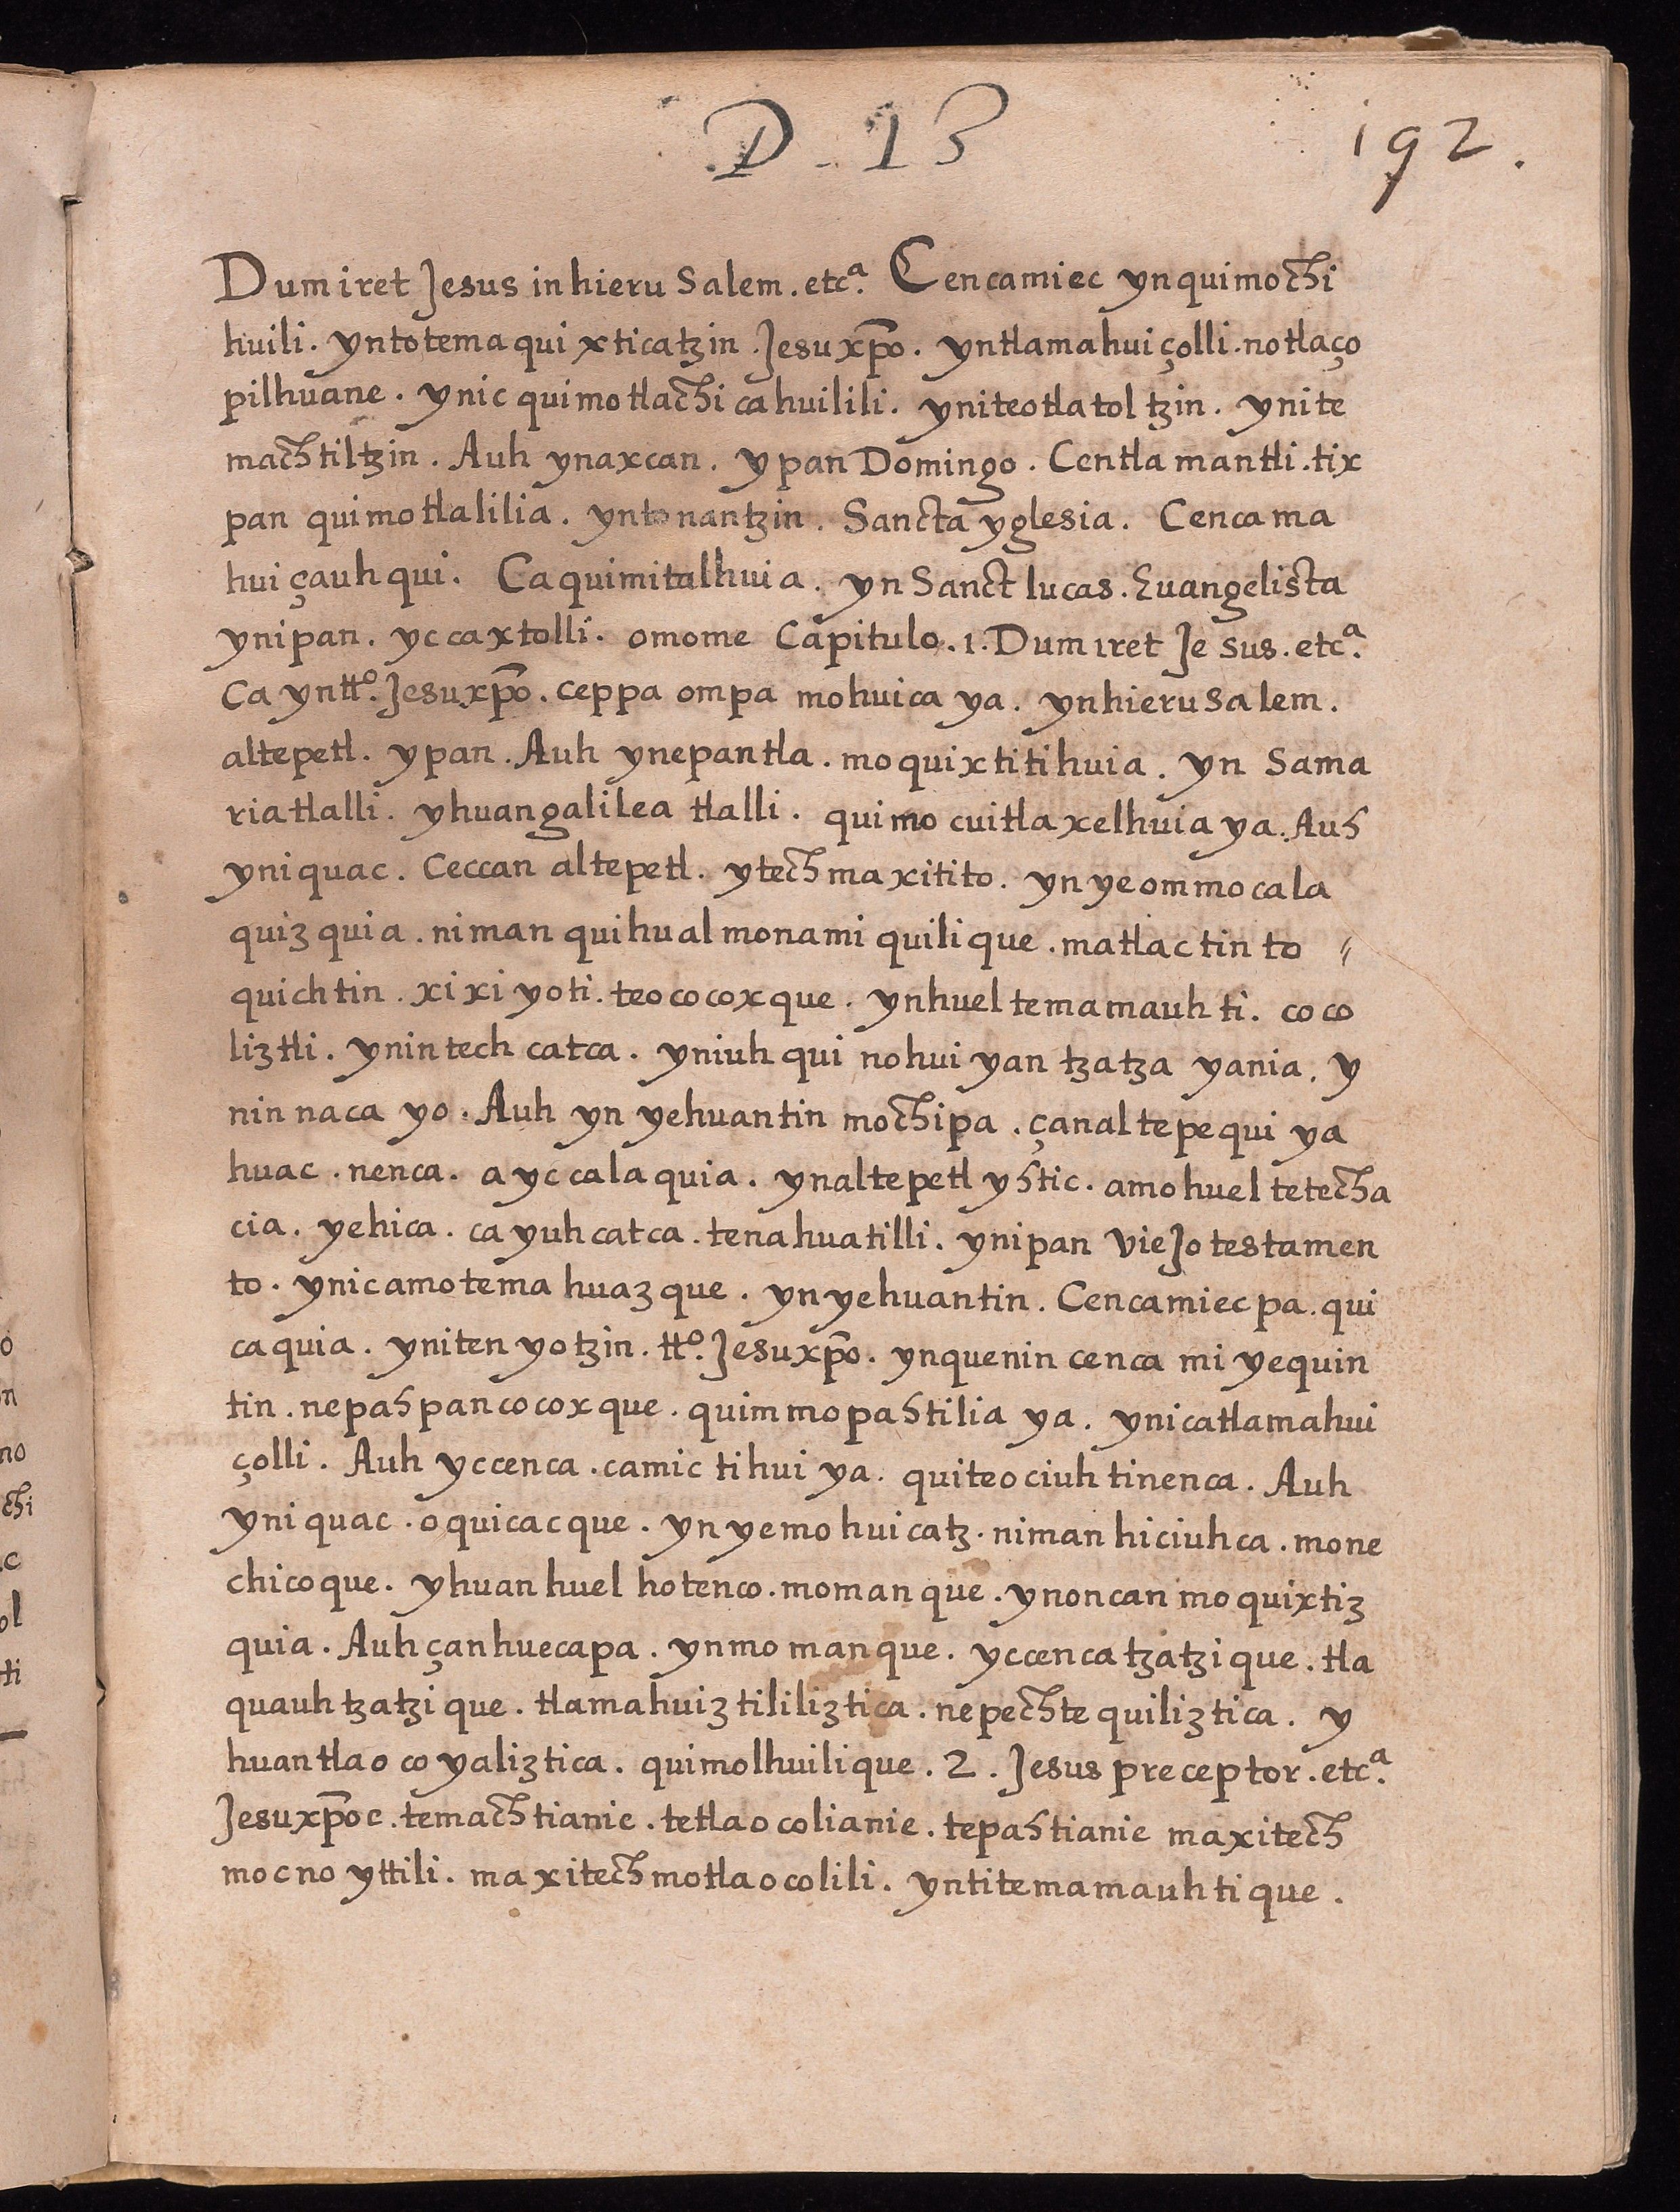 D. 13
192.
Dum iret Jesus in hieru Salem. etcª. Cencamiec ynquimochi
huili. yntotemaqui xticatzin. Jesuxpõ. yntlamahuiçolli. notlaço
pilhuane. ynic quimotlachi cahuilili. yniteotlatol tzin. ynite
machtiltzin. Auh ynaxcan. ypan Domingo. Centlamantli. tix
pan quimotlalilia. yntonantzin. Sancta yglesia. Cencama
huiçauhqui. Caquimitalhuia. yn Sanct lucas. Euangelista
ynipan. yccaxtolli. omome Capitulo. 1. Dum iret Je sus. etcª.
Ca yntt⁰. Jesuxpõ. ceppa ompa mohuica ya. ynhieruSalem.
altepetl. ypan. Auh ynepantla. moquixtitihuia. yn Sama
riatlalli. yhuangalilea tlalli. quimo cuitlaxelhuia ya. Auh
yniquac. Ceccan altepetl. ytechmaxitito. ynyeommocala
quizquia. niman quihualmonamiquilique. matlactin to〃
quichtin. xixiyoti. teococoxque. ynhueltemamauhti. coco
liztli. ynintech catca. yniuhqui nohuiyan tzatzayania. y
nin nacayo. Auh yn yehuantin mochipa. çanaltepequi ya
huac. nenca. ayccalaquia. ynaltepetl yhtic. amohuel tetecha
cia. yehica. ca yuhcatca. tenahuatilli. ynipan vieJo testamen
to. ynicamotemahuazque. ynyehuantin. Cencamiecpa. qui
caquia. ynitenyotzin. tt⁰. Jesuxpõ. ynquenin cenca miyequin
tin. nepahpancocoxque. quimmopahtilia ya. ynicatlamahui
çolli. Auh yccenca. camictihui ya. quiteociuhtinenca. Auh
yniquac. oquicacque. ynyemohuicatz. niman hiciuhca. mone
chicoque. yhuan huel hotenco. momanque. ynoncan moquixtiz
quia. Auhçanhuecapa. ynmomanque. yccencatzatzique. tla
quauhtzatzique. tlamahuiztililiztica. nepechtequiliztica. y
huantlaocoyaliztica. quimolhuilique. 2. Jesus preceptor. etcª.
Jesuxpõe. temachtianie. tetlaocolianie. tepahtianie maxitech
mocnoyttili. maxitechmotlaocolili. yntitemamauhtique.